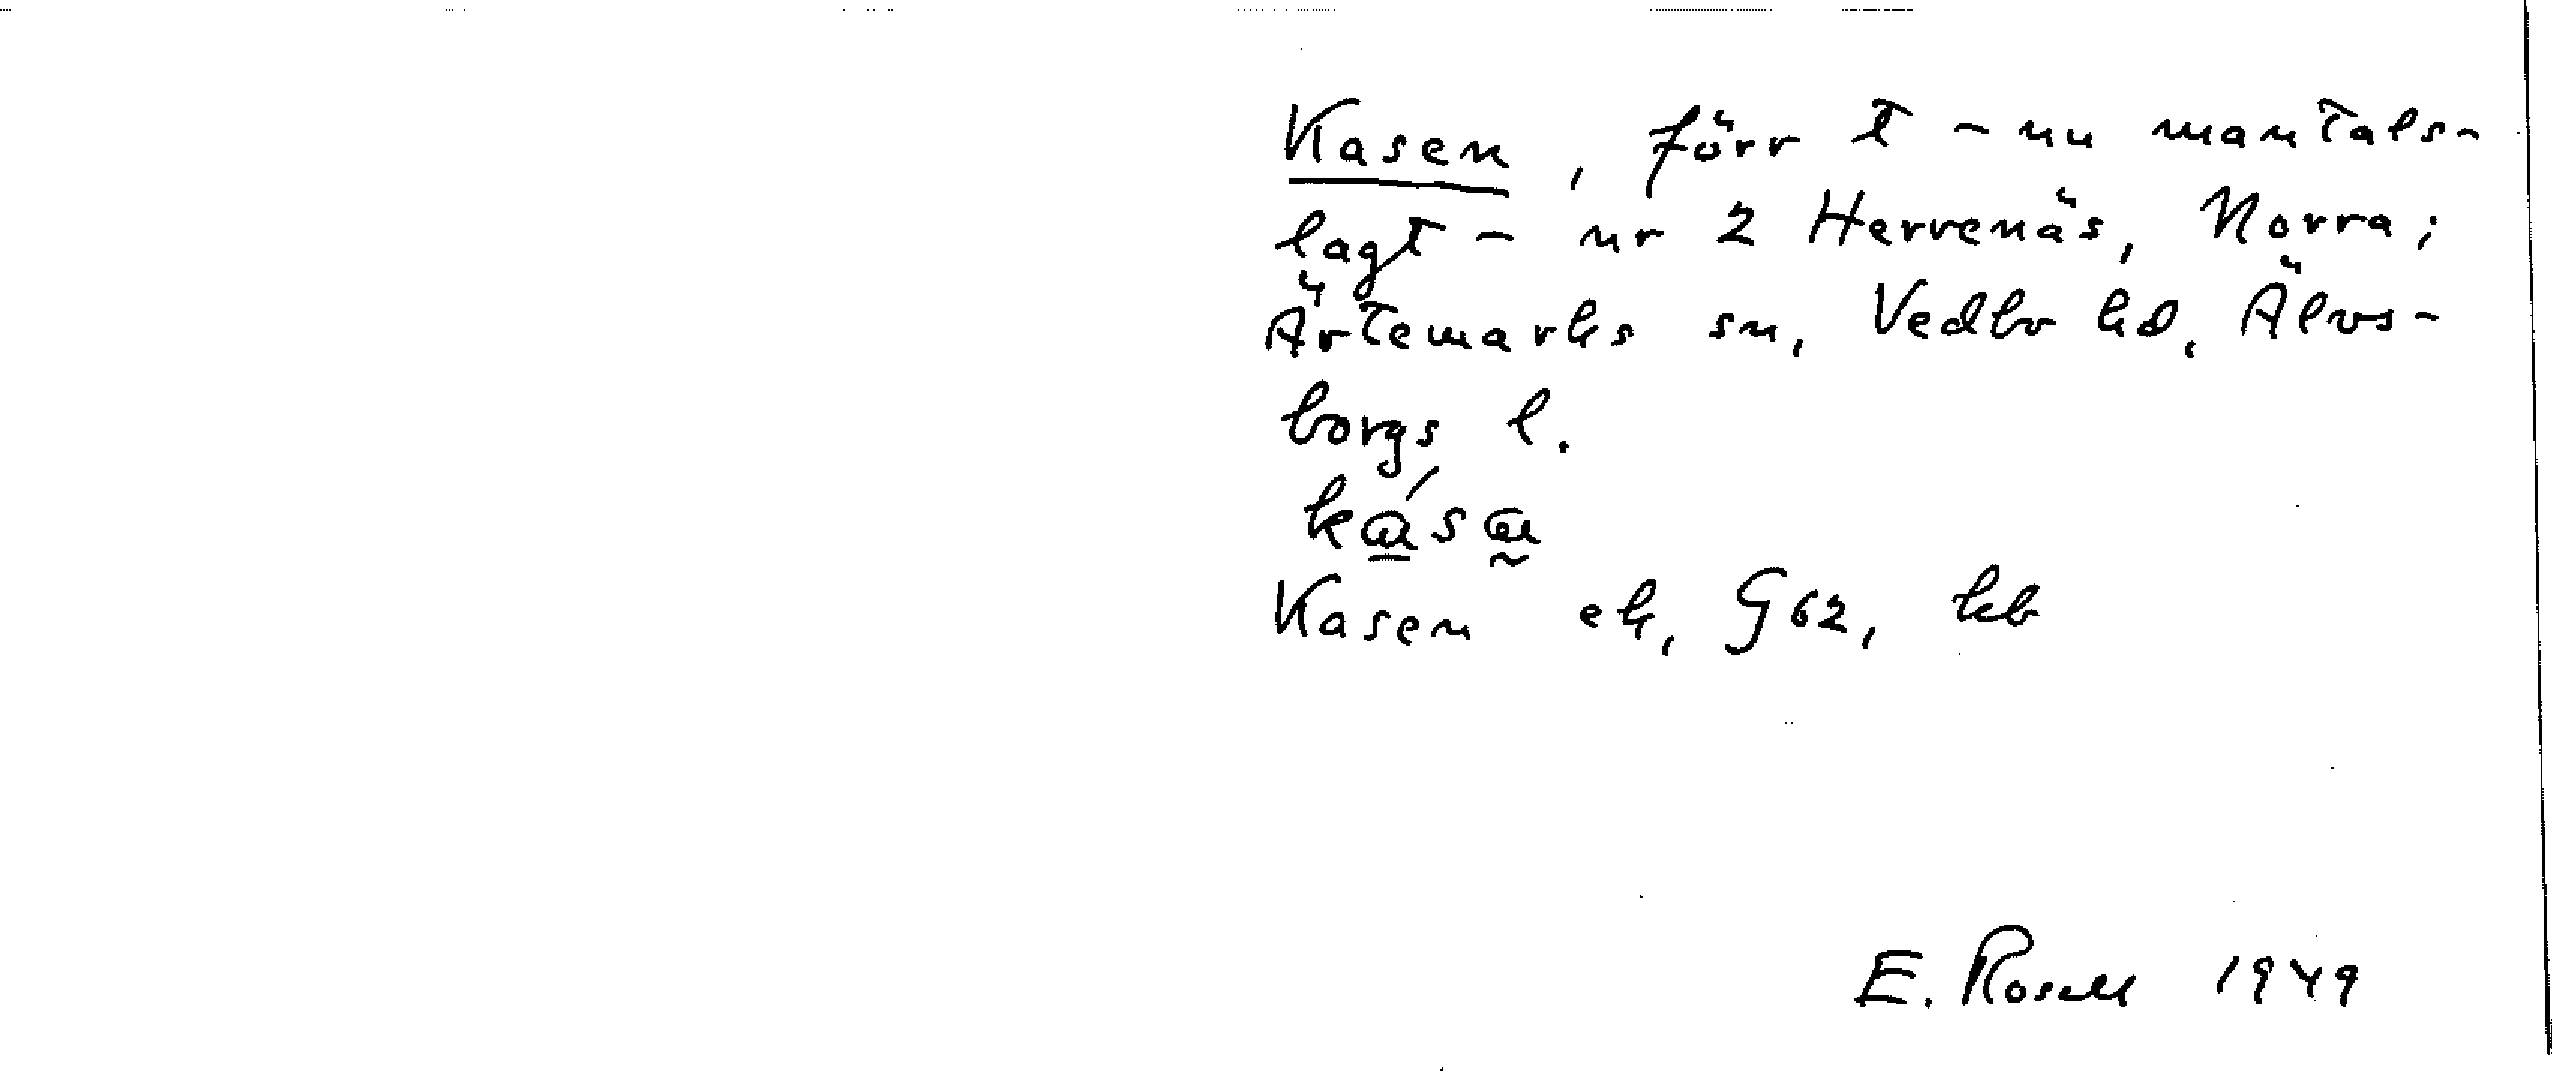 Kasen, förr t - nu mantals-
lagt - nr 2 Herrenäs, Norra;
Ärtemarks sn, Vedbo hd, Älvs-
borgs l.
Kasen ek, G62, kb
E. Rosell 1949